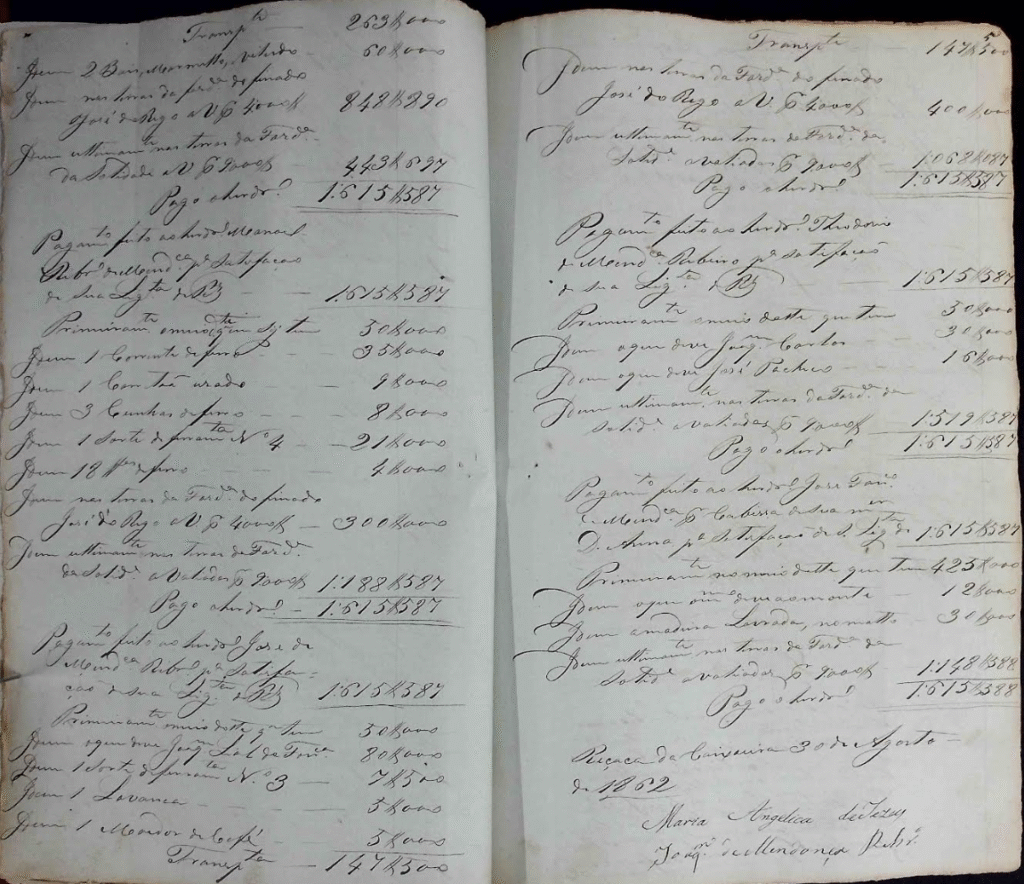 Transpte 263$000
Idem 2 Bois, Marmello, Veludo 60$000
Idem nas terras da fazda do finado
José do Rego a V. p 4000$ 848$890
Idem ultimamte nas terras da Fazda
da Solidade a V. p 9000$ 443$697
Pago o herdro 1:615$587
Pagamto feito ao herdro Manoel
Ribro de Mendça pa Satisfação
de sua Ligta de R$ 1:615$587
Primeiramte em meio q tem 50$000
Idem 1 Corrente de ferro 35$000
Idem 1 Carretão uzado 9$000
Idem 3 Cunhas de ferro 8$000
Idem 1 Sorte de ferramta No 4 21$000
Idem 18 de ferro 4$000
Idem nas terras da Fazda do finado
José do Rego a V. p 4000$ 300$000
Idem ultimamte nas terras da Fazda
da Solide avaliadas p 9000$ 1:188$587
Pago o herdro 1:615$587
Pagamto feito ao herdro José de
Mendça Ribro pa Satisfa-
ção de sua Ligta de R$ 1:615$587
Primeiramte em meio deste q tem 50$000
Idem o que deve Joaqm 80$000
Idem 1 Sorte de ferramta No 3 7$500
Idem 1 Lavanca 5$000
Idem 1 de Café 5$000
Transpte 147$500
5
Transpte 147$500
Idem nas terras da Fazda do finado
José do Rego a V. p 4000$ 400$000
Idem ultimamte nas terras da Fazda da
Solide avaliadas p 9000$ 1:068$087
Pago o herdro 1:615$587
Pagamto feito ao herdro Theodorio
de Mendça Ribeiro pa Satisfação
de sua Ligta de R$ 1:615$587
Primeiramte em meio deste que tem 50$000
Idem o que deve Joaqm Carlos 30$000
Idem o que deve José Pacheco 16$000
Idem ultimamte nas terras da Fazda da
Solide avaliadas p 9000$ 1:519$587
Pago o herdro 1:615$587
Pagamto feito ao herdro José
de Mendça p Cabeça de sua mer
D. Anna pa Satisfação de S. Ligta de 1:615$587
Primeiramte no meio deste que tem 425$000
Idem o que devia o monte 12$000
Idem a madeira Lavrada, no matto 30$000
Idem ultimamte nas terras da Fazda da
Solide avaliadas p 9000$ 1:148$588
Pago o herdro 1:615$588
da Caixoeira 30 de Agosto
de 1862
Maria Angelica de Jezus
Joaqm de Mendonça Ribro